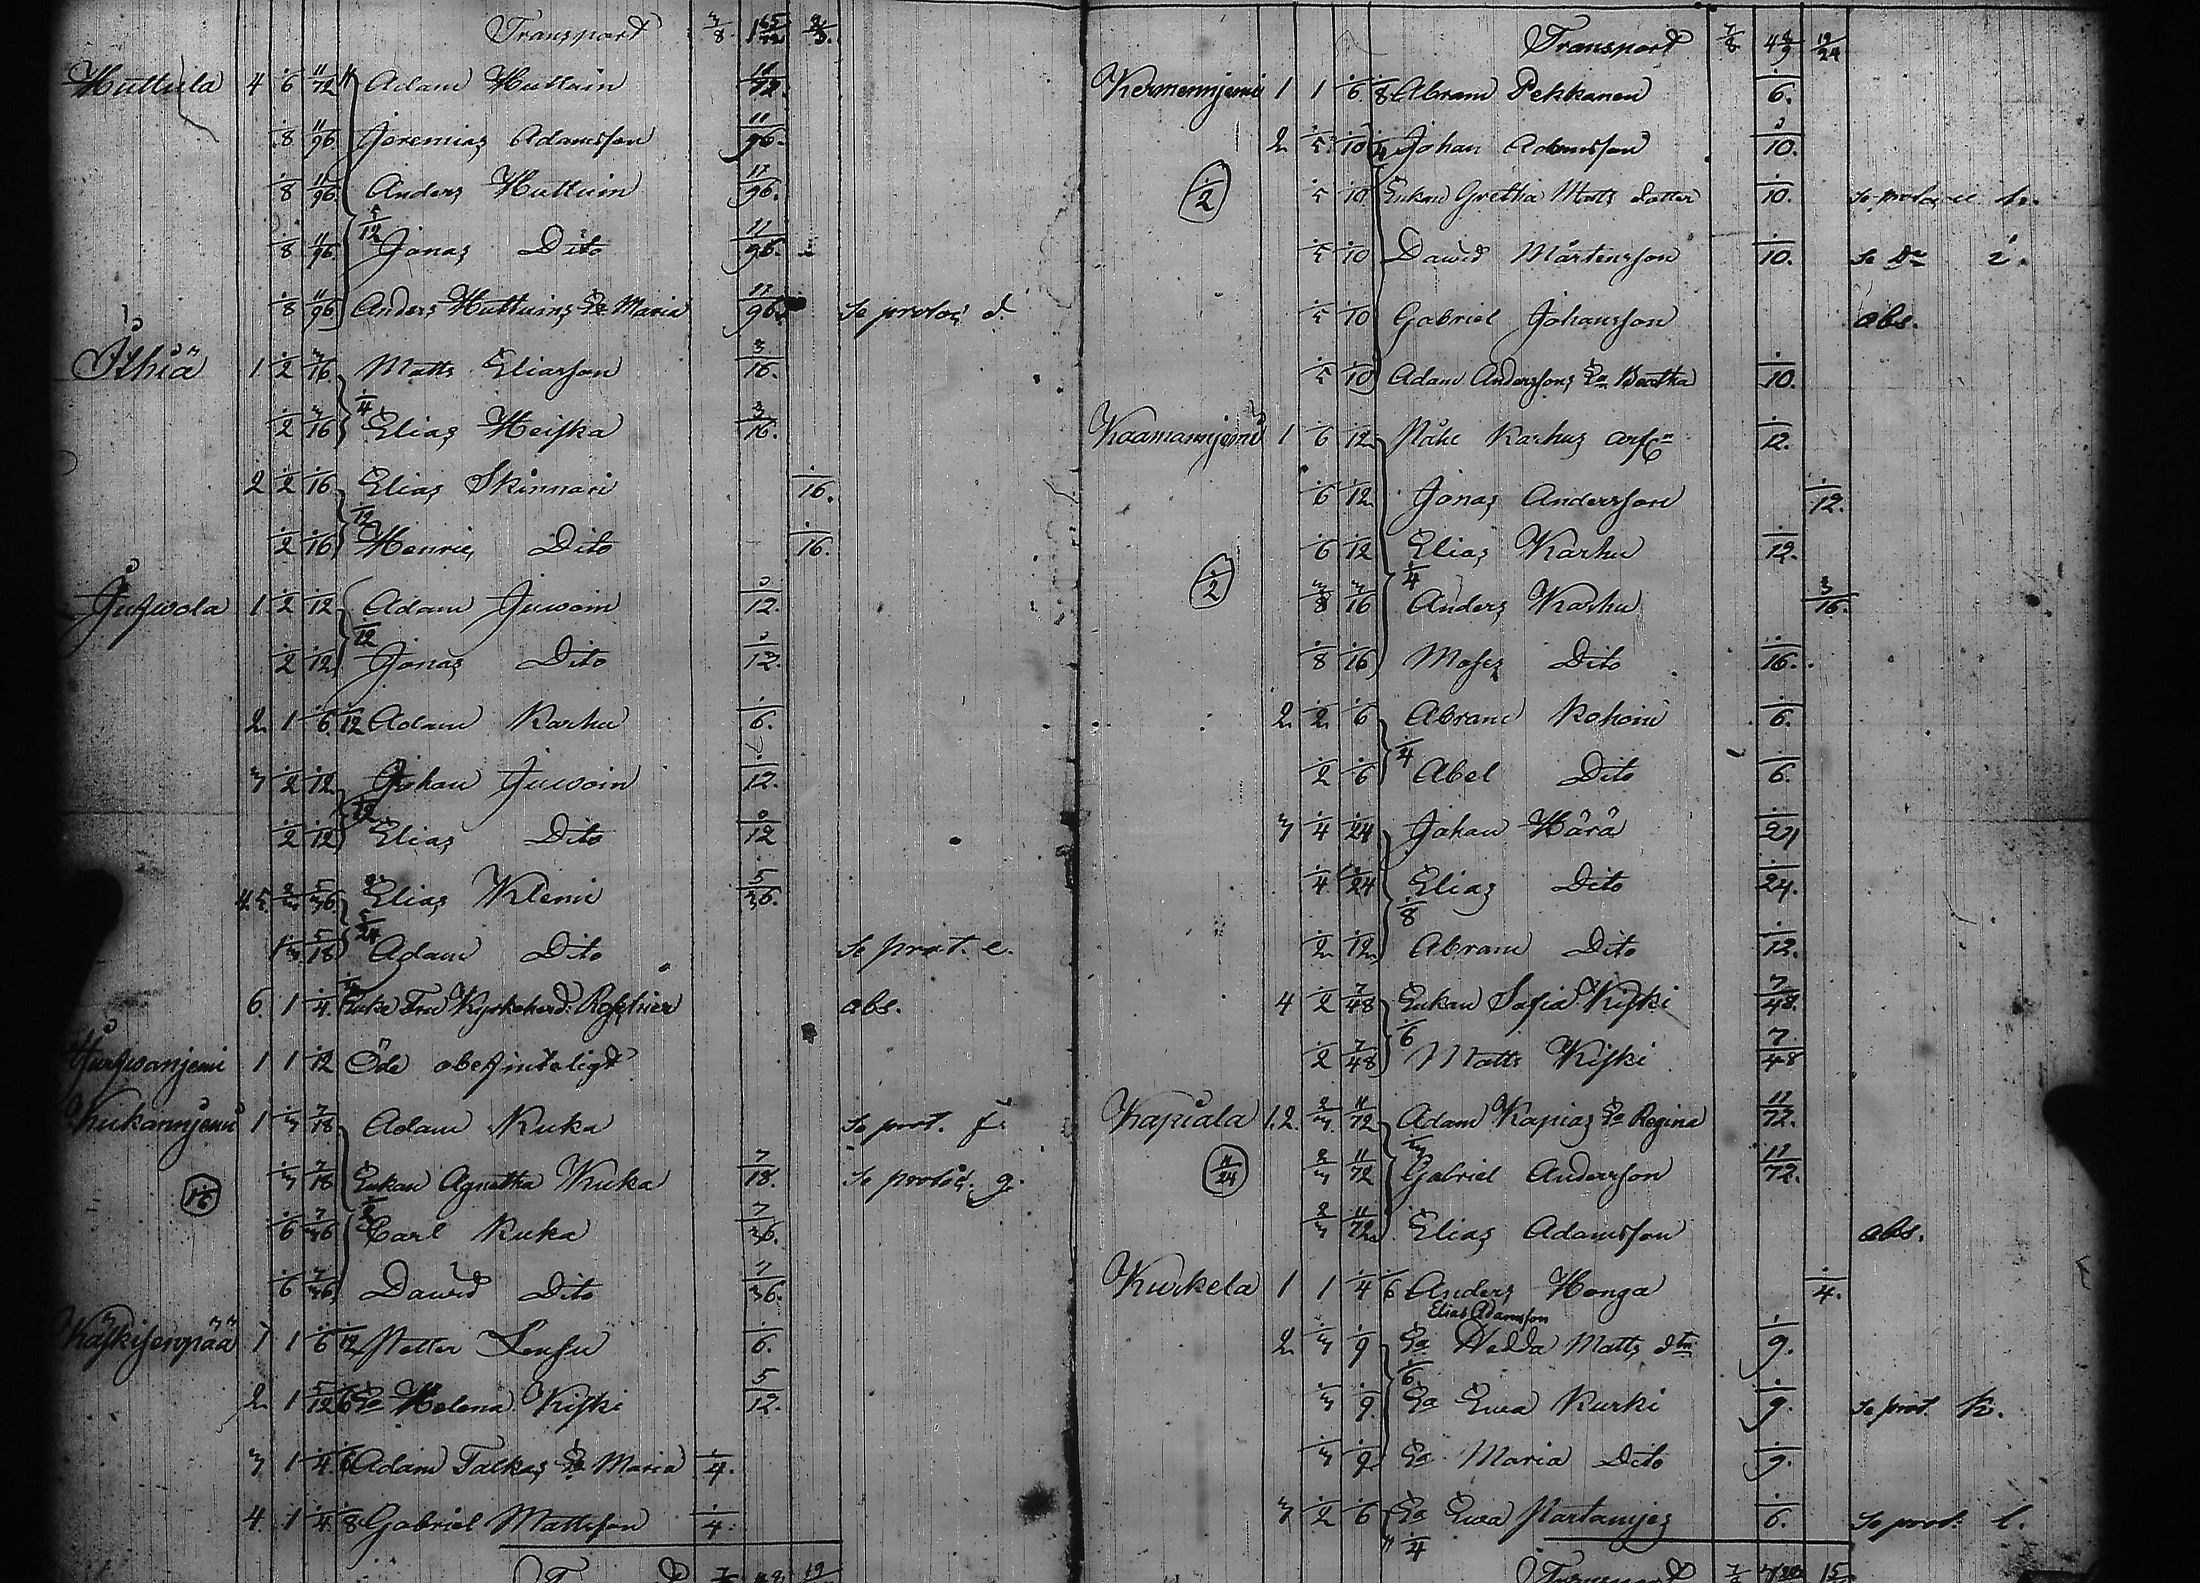 Transport 7/8 1 65/72 2/3.
Huttula 4 1/6 11/72 Adam Huttuin 11/72.
1/8 11/96 Jeremias Adamsson 11/96.
1/8 11/96 Anders Huttuin 11/96.
1/8 11/96 5/12 Jonas Dito 11/96.
1/8 11/96 Anders Huttuins Ea Maria 11/96. Se protoc. d.
Ithiä 1 1/2 3/16 Matts Eliasson 3/16.
1/2 3/16 1/4 Elias Heiska 3/16.
2 1/2 1/16 Elias Skinnari 1/16.
1/2 1/16 1/12 Henric Dito 1/16.
Juswola 1 1/2 1/12 Adam Juwoin 1/12.
1/2 1/12 1/12 Jonas Dito 1/12.
2 1 1/6 1/12 Adam Karhu 1/6.
3 1/2 1/12 Johan Juwoin 1/12.
1/2 1/12 1/12 Elias Dito 1/12
4.5. 2/3 5/36 Elias Klemi 5/36.
1 1/3 5/18 5/24 Adam Dito Se prot. e.
6 1 1/4 Enke Fru Kyrkoherd: abs.
1 1 1/12 Öde obefinteligt
Kukannjemi 1 1/3 7/18 Adam Kuka Se prot. f.
1/3 7/18 Enkan Agnetha Kuka 7/18. Se protoc. g.
1/6 7/36 Carl Kuka 7/36.
1/6 7/36 Dawid Dito 7/36.
Käskisenpää 1 1 1/6 1/12 Petter Lensu 1/6.
2 1 5/12 1/6 Ea Helena Kiski 5/12.
3 1 1/4 1/6 Adam Talkas Ea Maria 1/4.
4 1 1/4 1/8 Gabriel Mattsson 1/4.
Transport 7/8 4 8/9 19/24
Kermennjemi 1 1 1/6 1/8 Abram Pekkanen 1/6.
2 1/5 1/10 1/4 Johan Adamsson 1/10.
1/2 1/5 1/10 Enkan Gretha Matts dotter 1/10. Se protoc. h.
1/5 1/10 Dawid Mårtensson 1/10. Se Do i.
1/5 1/10 Gabriel Johansson abs.
1/5 1/10 Adam Anderssons Ea Beatha 1/10.
Kaamannjemi 1 1/6 1/12 Påhl Karhus arf. 1/12.
1/6 1/12 Jonas Andersson 1/12.
1/6 1/12 Elias Karhu 1/12.
1/2 3/8 3/16 1/4 Anders Karhu 3/16.
1/8 1/16 Moses Dito 1/16.
2 1/2 1/6 Abram Rohoin 1/6.
1/2 1/6 1/4 Abel Dito 1/6.
3 1/4 1/24 Johan Härä 1/24
1/4 1/24 Elias Dito 1/24.
1/2 1/12 1/8 Abram Dito 1/12.
4 1/2 7/48 Enkan Sofia Kiski 7/48.
1/2 7/48 1/6 Matts Kiski 7/48
Kapiala 1.2. 2/3 11/72 Adam Kapias Ea Regina 11/72.
11/24 2/3 11/72 Gabriel Andersson 11/72.
2/3 11/72 Elias Adamsson abs.
Kurkela 1 1 1/4 1/6 Anders Honga 1/4.
Elias Adamsson
2 1/3 1/9 Ea Hedda Matts dtr 1/9.
1/3 1/9 1/6 Ea Ewa Kurki 1/9. Se prot. k.
1/3 1/9 Ea Maria Dito 1/9.
3 1/2 1/6 Ea Ewa Partanjes 1/6. Se prot. l.
1/4